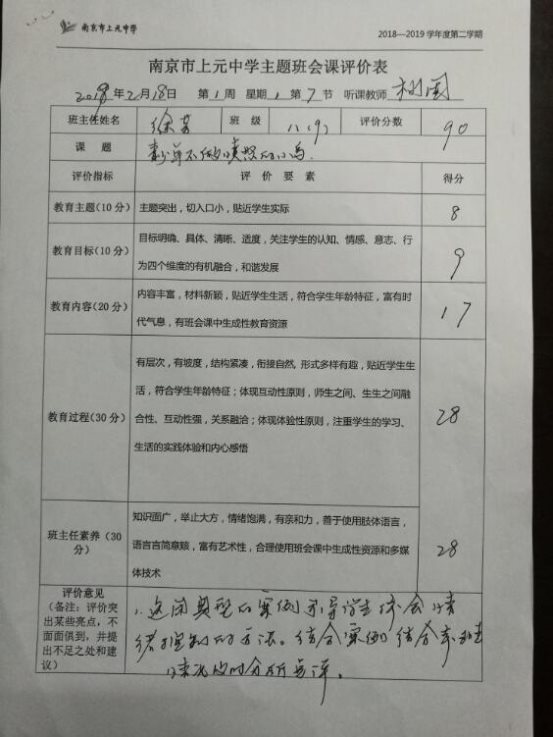 南京市上元中学
2018—2019 学年度第二学期
南京市上元中学主题班会课评价表
2019年2月18日 第1周 星期1 第7节 听课教师
班主任姓名 徐 班 级 八(9) 评价分数 90
课 题 不做愤怒的小鸟.
评价指标 评 价 要 素 得分
教育主题(10 分) 主题突出，切入口小，贴近学生实际 8
教育目标(10 分) 目标明确、具体、清晰、适度，关注学生的认知、情感、意志、行 9
为四个维度的有机融合，和谐发展
教育内容(20 分) 内容丰富，材料新颖，贴近学生生活，符合学生年龄特征，富有时 17
代气息，有班会课中生成性教育资源
教育过程(30 分) 有层次，有坡度，结构紧凑，衔接自然, 形式多样有趣，贴近学生生 28
活，符合学生年龄特征；体现互动性原则，师生之间、生生之间融
合性、互动性强，关系融洽；体现体验性原则，注重学生的学习、
生活的实践体验和内心感悟
班主任素养（30 知识面广，举止大方，情绪饱满，有亲和力，善于使用肢体语言， 28
分） 语言言简意赅，富有艺术性，合理使用班会课中生成性资源和多媒
体技术
评价意见
（备注：评价突
出某些亮点，不
面面俱到，并提
出不足之处和建
议）
1. 选用典型的案例引导学生体会情
绪控制的方法。结合案例结合本班
情况及时分析点评。